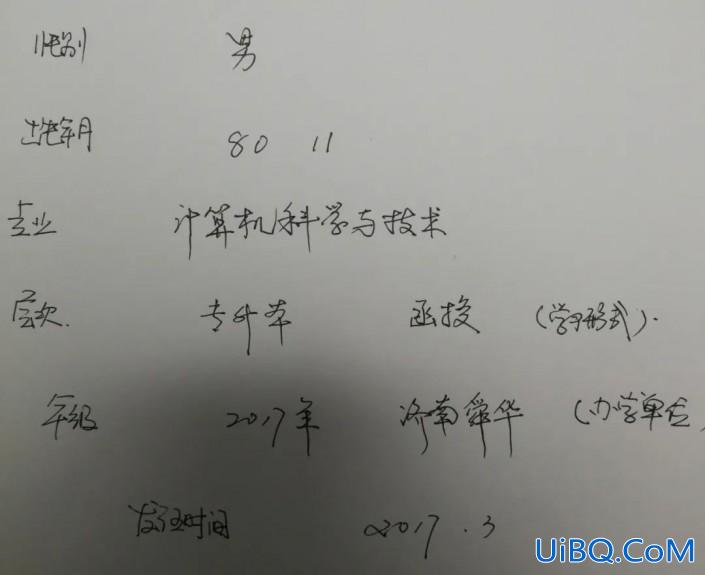 性别 男
出生年月 80 11
专业 计算机科学与技术
层次. 专升本 函授 (学习形式).
年级 2017年 济南舜华 (办学单位
发证时间 2017.3
UiBQ.CoM